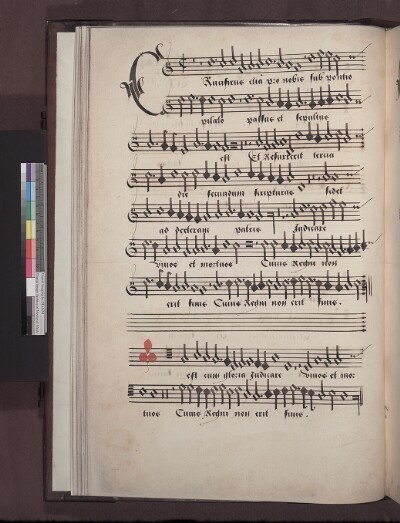 Crucifixus etiā pro nobis sub pontio
pilato passus et sepultus
est Et Resurrexit tertia
die secundum scripturas sedet
ad dexteram patris Iudicare
vivos et mortuos Cuius Regni non
erit finis Cuius Regni non erit finis.
est cum gloria Iudicare vivos et mor
tuos Cuius Regni non erit finis.